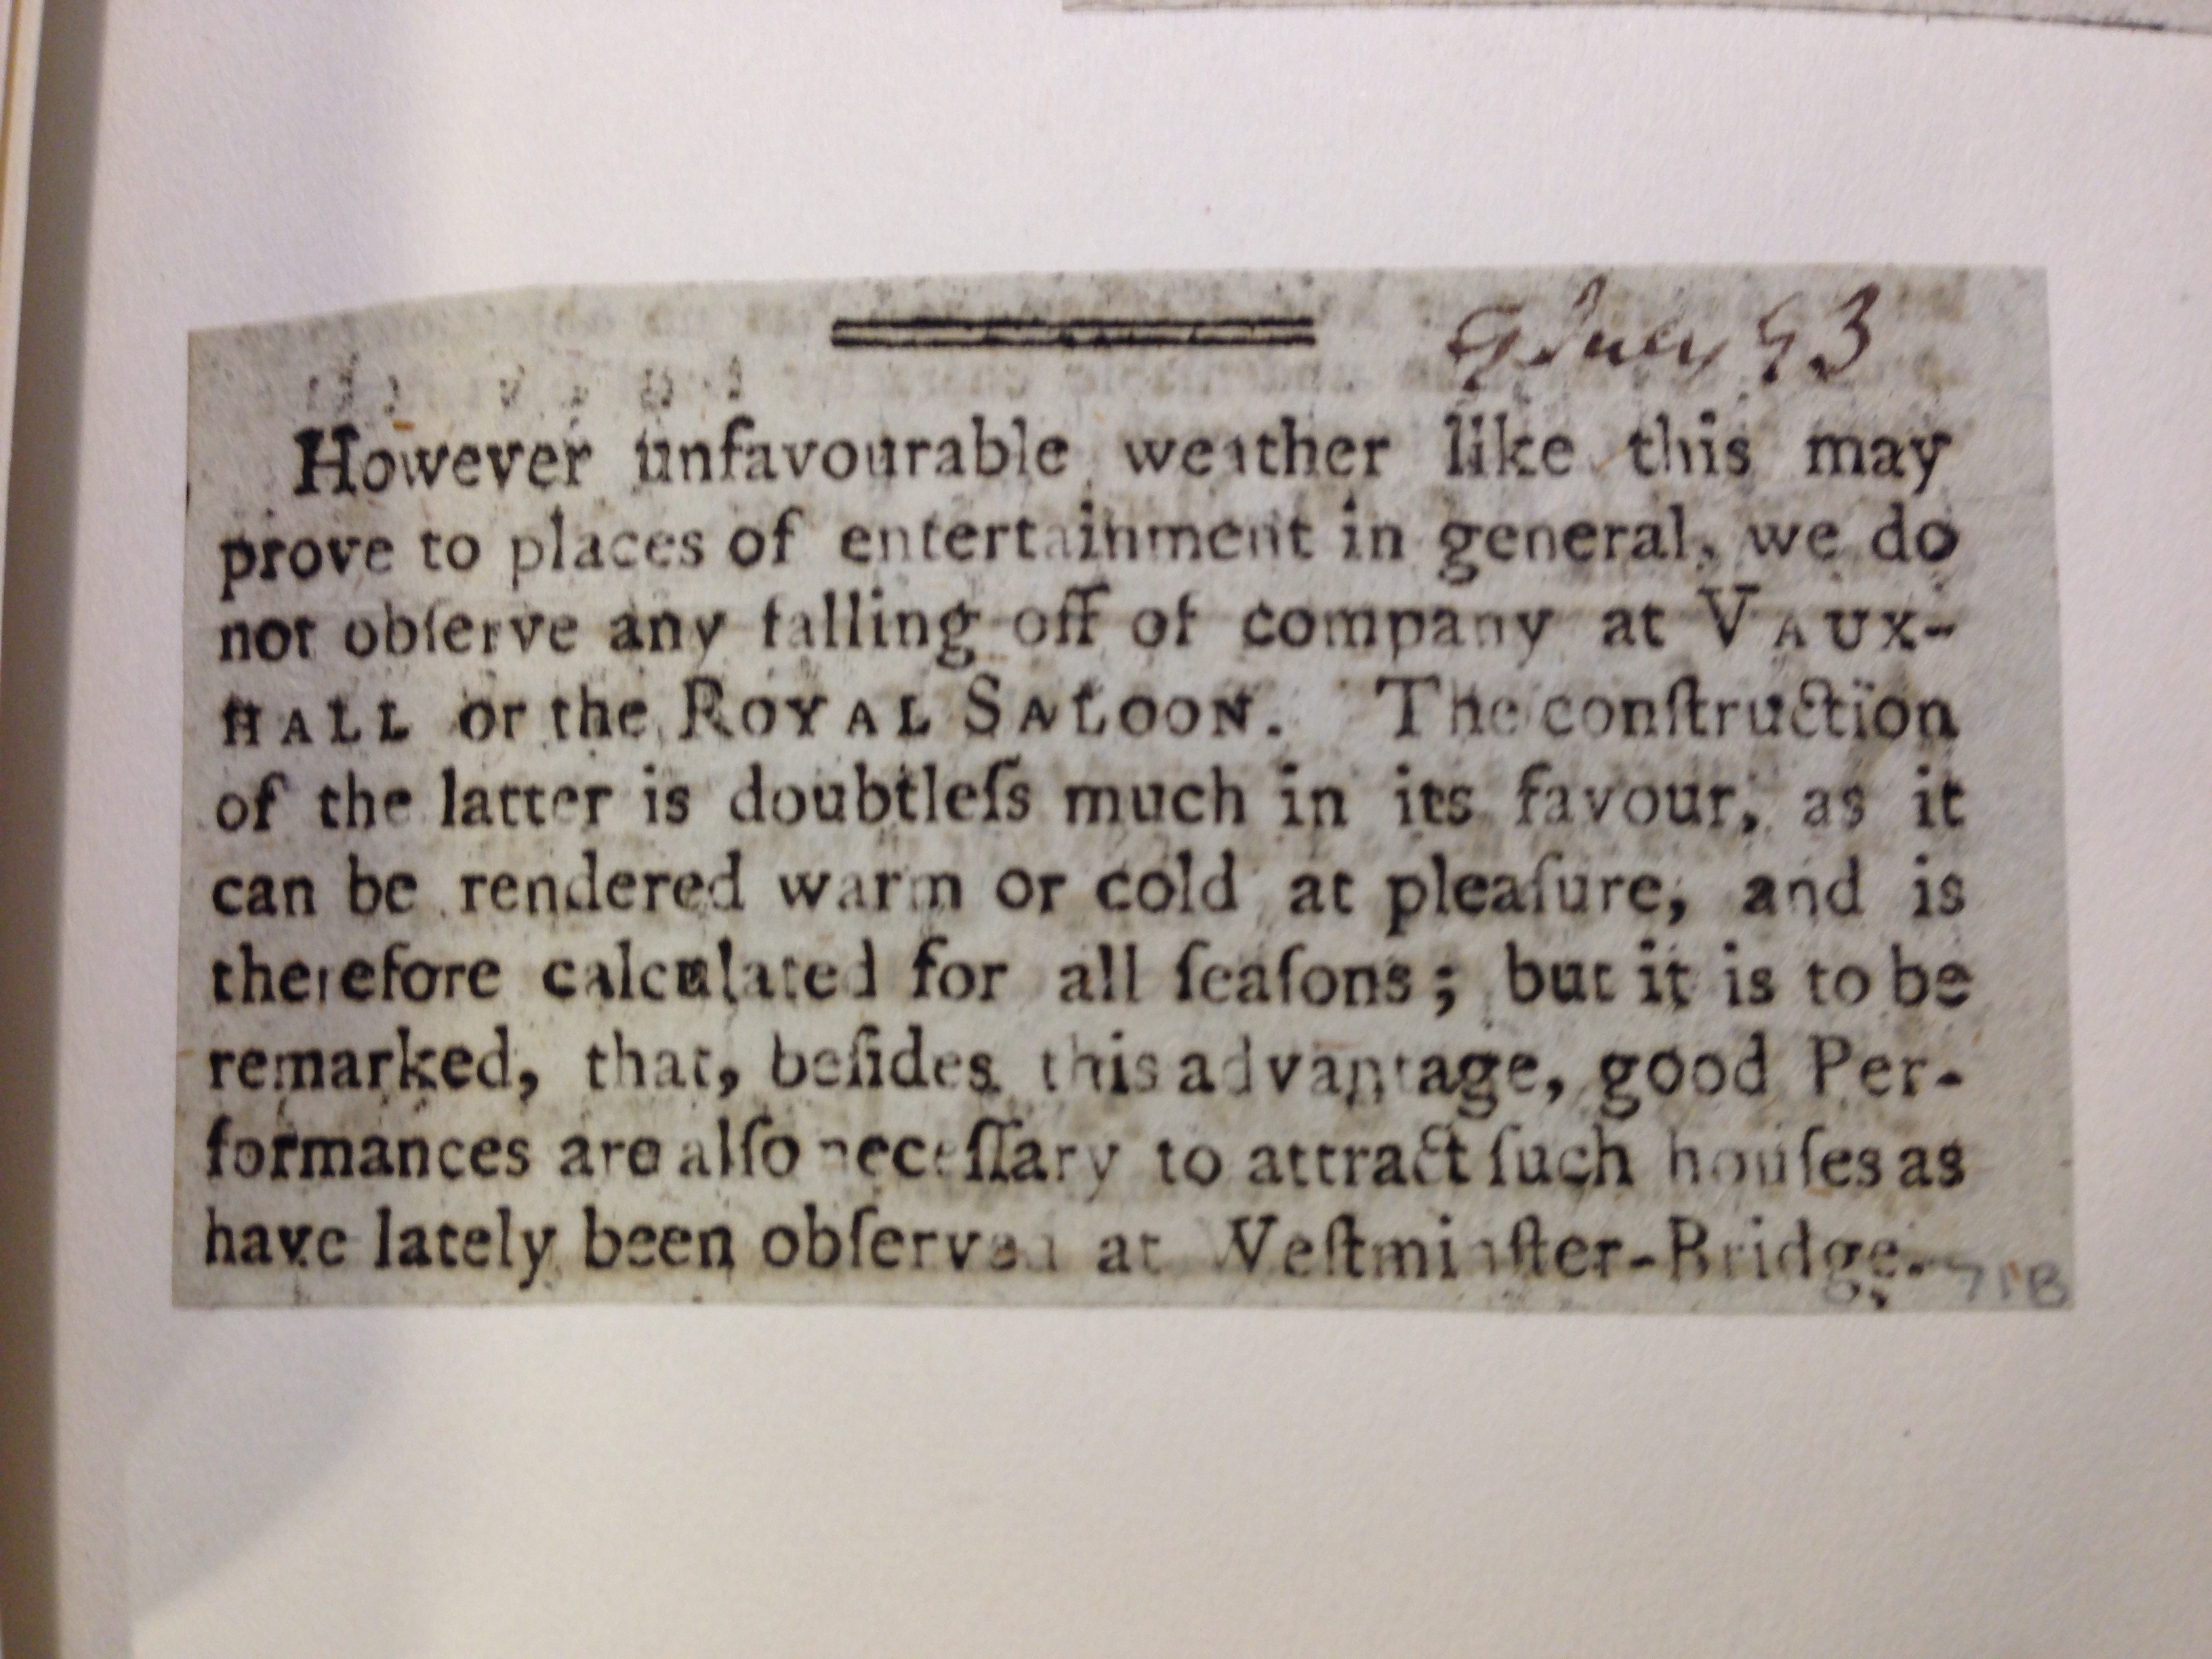 9 July 93
However unfavourable weather like this may
prove to places of entertainment in general, we do
not obſerve any falling off of company at VAUX-
HALL or the ROYAL SALOON. The conſtruction
of the latter is doubtleſs much in its favour, as it
can be rendered warm or cold at pleaſure, and is
therefore calculated for all ſeaſons; but it is to be
remarked, that, beſides this advantage, good Per-
formances are alſo neceſſary to attract ſuch houſes as
have lately been obſerved at Weſtminſter-Bridge.
71B